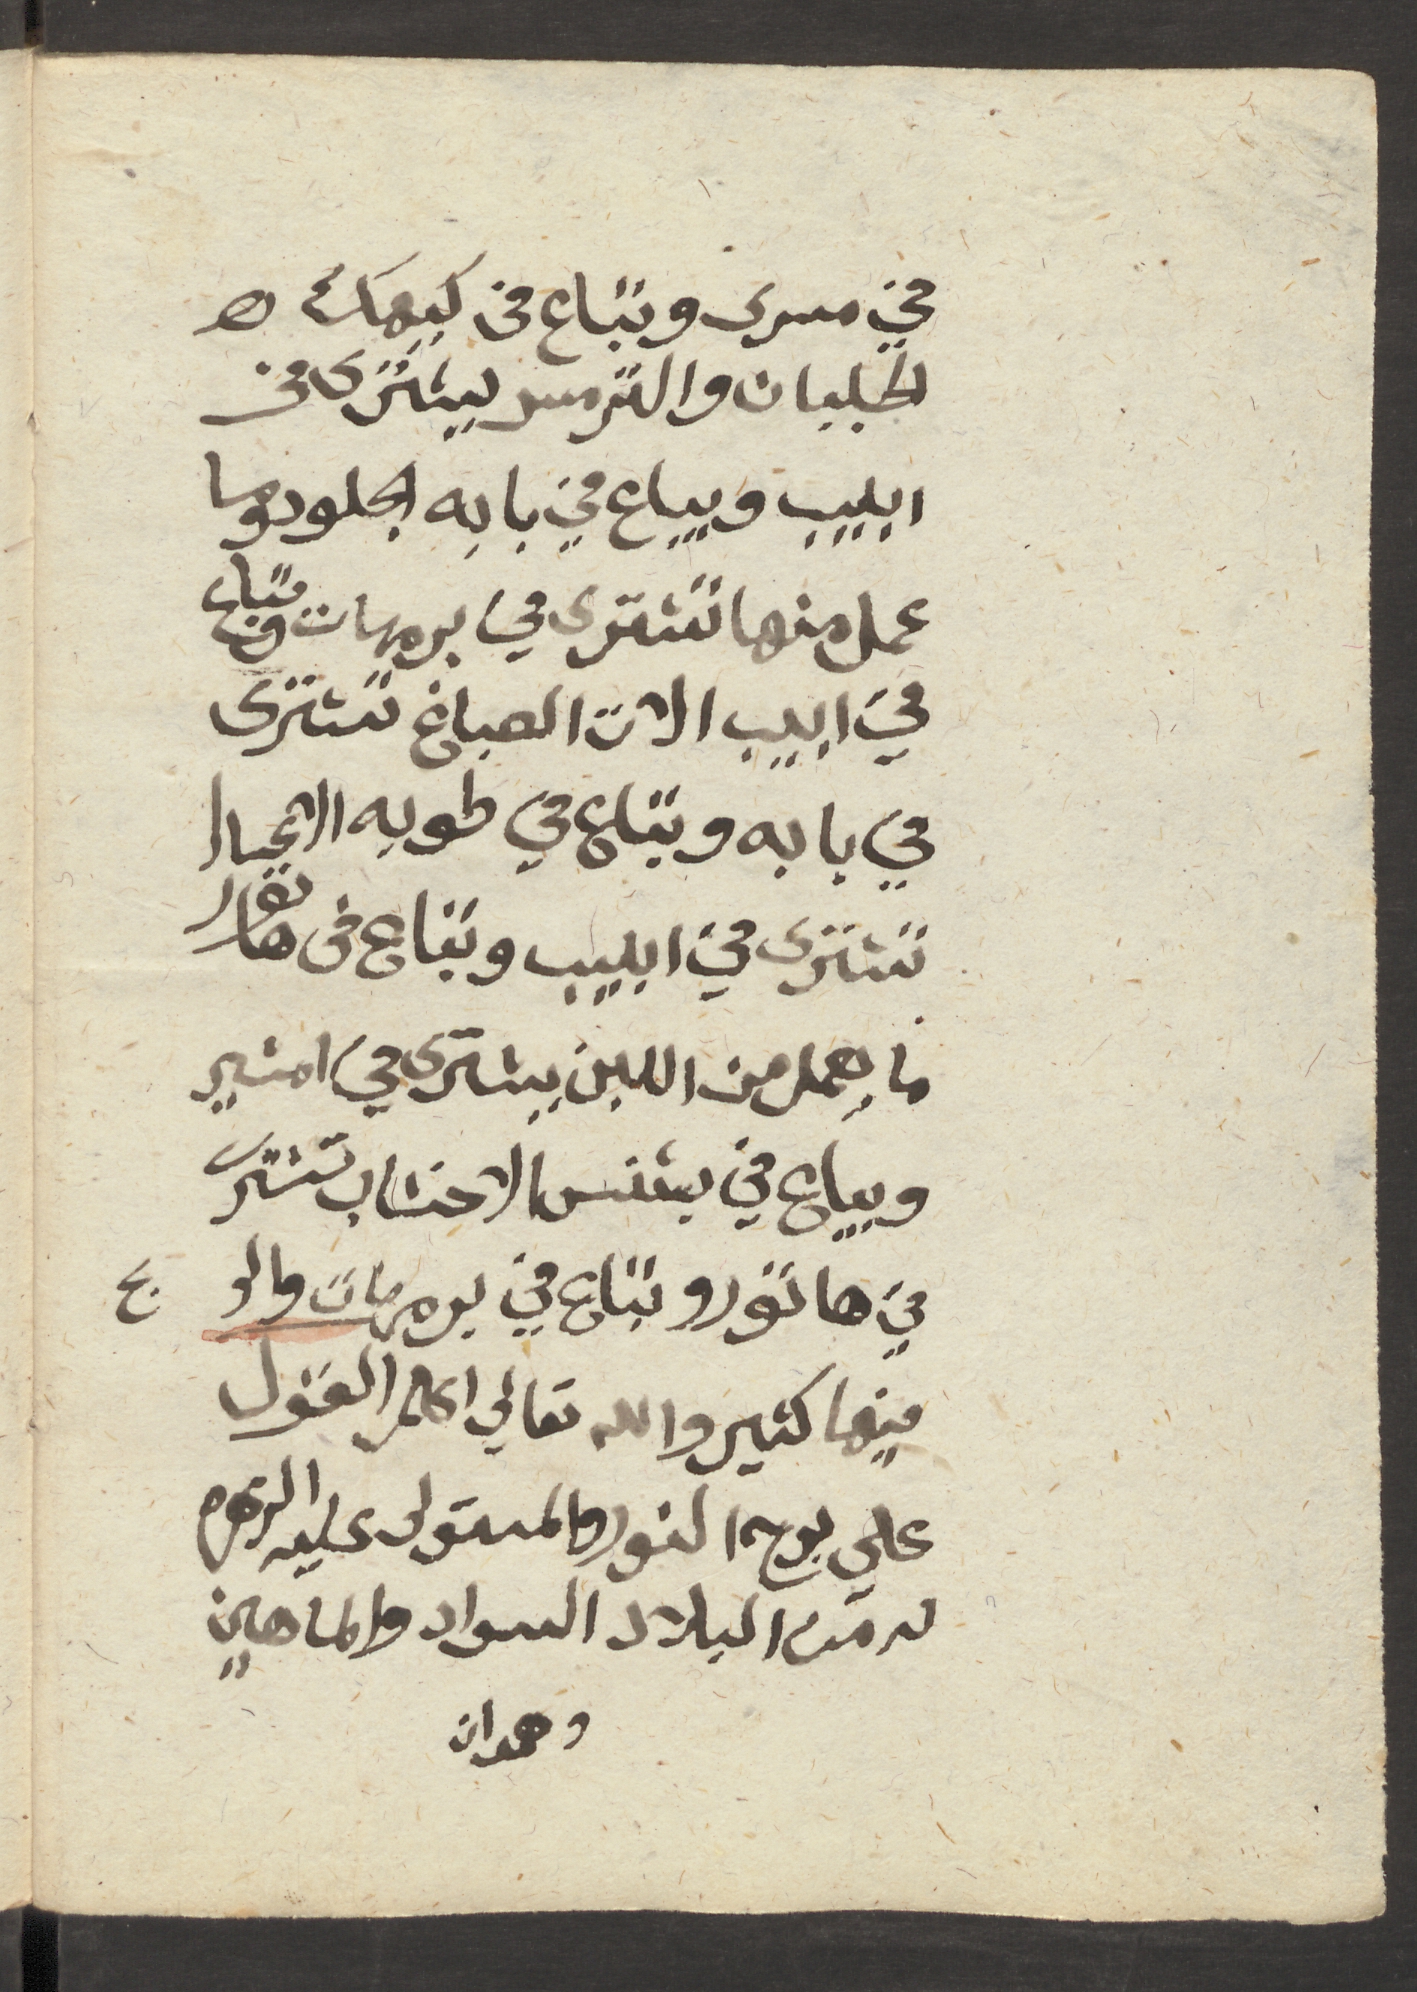 في مسرى وتباع فى كيهك ه
الجلبان والترمس يشترى فى
ابيب ويباع في بابه الجلود وما
عمل منها تشترى في برمهات وتباع
في ابيب الات الصباغ تشترى
في بابه وتباع في طوبه الاعجال
تشترى في ابيب وتباع فى هاتور
ما يعمل من اللبن يشترى في امشير
ويباع في بشنس الاخشاب تشترى
في هاتور وتباع في برمهات والر بح
فيها كثير والله تعالي اعلم القول
علي برج الثور والمستولى عليه الزهره
له من البلاد السواد والماهين
وهمدان